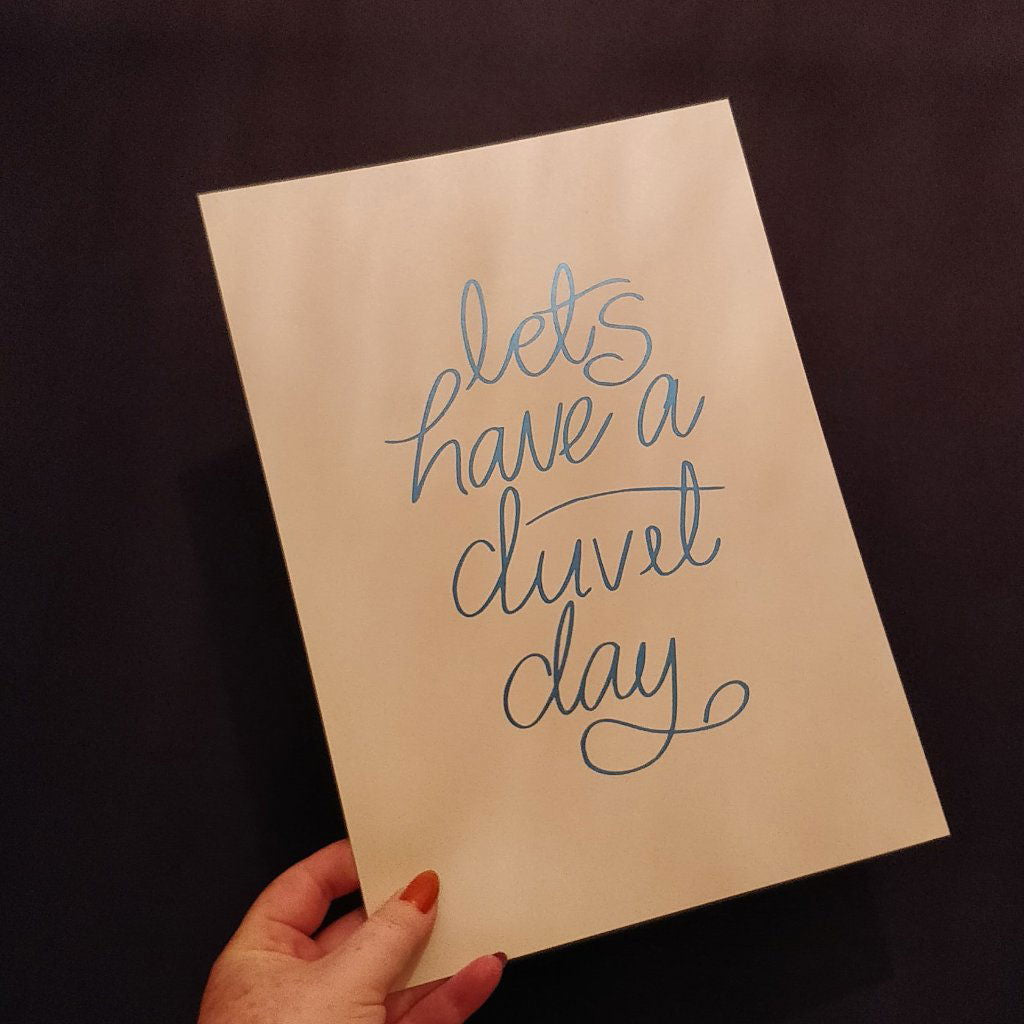 lets
have a
duvet
day